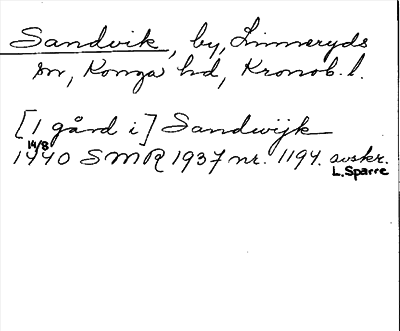 Sandvik, by, Linneryds
sn, Konga hd, Kronob. l.
[1 gård i] Sandwijk
14/8
1440 SMR 1937 nr. 1194. avskr.
L. Sparre